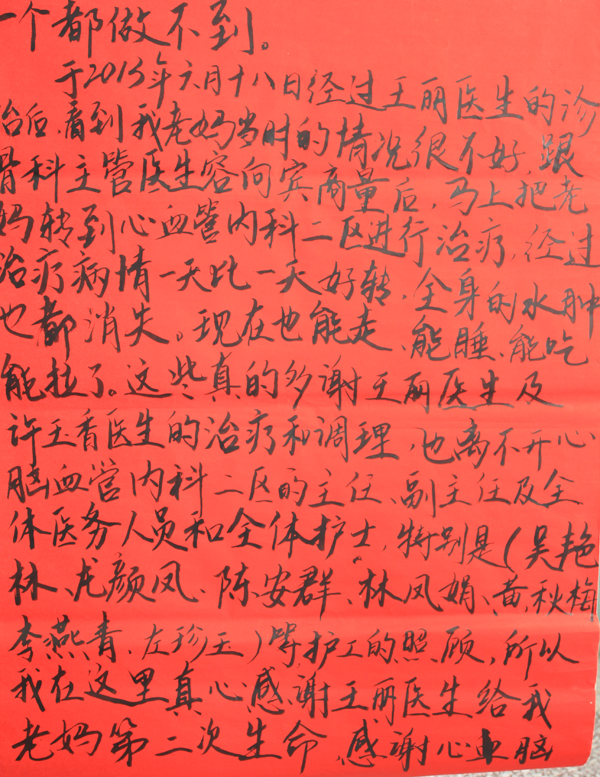 一个都做不到。
于2015年六月十八日经过王丽医生的诊
治后,看到我老妈当时的情况很不好,跟
骨科主管医生容向宾商量后,马上把老
妈转到心血管内科二区进行治疗,经过
治疗病情一天比一天好转,全身的水肿
也都消失。现在也能走、能睡、能吃、
能拉了。这些真的多谢王丽医生及
许玉香医生的治疗和调理,也离不开心
脑血管内科二区的主任、副主任及全
体医务人员和全体护士,特别是(吴艳
林、龙颜凤、陈安群、林凤娟、黄秋梅
李燕青、左珍玉)等护工的照顾,所以
我在这里真心感谢王丽医生给我
老妈第二次生命,感谢心血脑